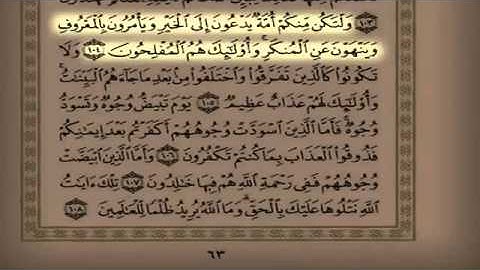 ١٠٣ وَلْتَكُن مِّنكُمْ أُمَّةٌ يَدْعُونَ إِلَى ٱلْخَيْرِ وَيَأْمُرُونَ بِٱلْمَعْرُوفِ
وَيَنْهَوْنَ عَنِ ٱلْمُنكَرِ ۚ وَأُو۟لَٰٓئِكَ هُمُ ٱلْمُفْلِحُونَ ١٠٤ وَلَا
تَكُونُوا۟ كَٱلَّذِينَ تَفَرَّقُوا۟ وَٱخْتَلَفُوا۟ مِنۢ بَعْدِ مَا جَآءَهُمُ ٱلْبَيِّنَٰتُ ۚ
وَأُو۟لَٰٓئِكَ لَهُمْ عَذَابٌ عَظِيمٌ ١٠٥ يَوْمَ تَبْيَضُّ وُجُوهٌ وَتَسْوَدُّ
وُجُوهٌ ۚ فَأَمَّا ٱلَّذِينَ ٱسْوَدَّتْ وُجُوهُهُمْ أَكَفَرْتُم بَعْدَ إِيمَٰنِكُمْ
فَذُوقُوا۟ ٱلْعَذَابَ بِمَا كُنتُمْ تَكْفُرُونَ ١٠٦ وَأَمَّا ٱلَّذِينَ ٱبْيَضَّتْ
وُجُوهُهُمْ فَفِى رَحْمَةِ ٱللَّهِ هُمْ فِيهَا خَٰلِدُونَ ١٠٧ تِلْكَ ءَايَٰتُ
ٱللَّهِ نَتْلُوهَا عَلَيْكَ بِٱلْحَقِّ ۗ وَمَا ٱللَّهُ يُرِيدُ ظُلْمًا لِّلْعَٰلَمِينَ ١٠٨
٦٣